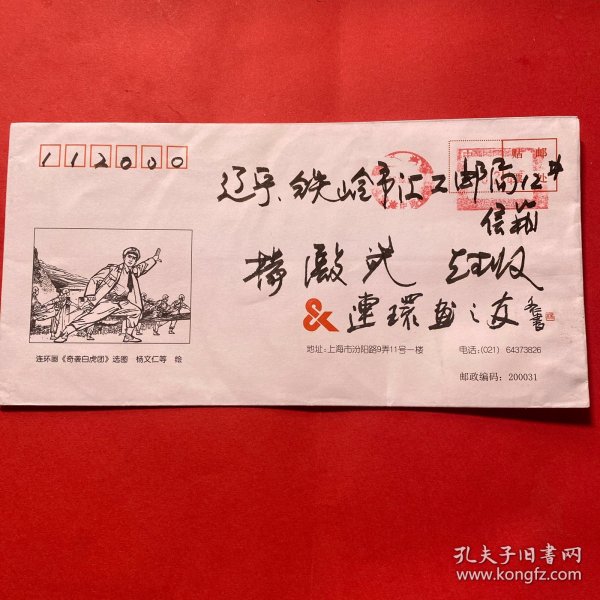 112000
贴邮
辽宁铁岭市汇工邮局12#
信箱
杨殿武 同志收
& 连环画之友
连环画《奇袭白虎团》选图 杨文仁等 绘
地址：上海市汾阳路9弄11号一楼 电话：(021) 64373826
邮政编码：200031
孔夫子旧书网
www.kongfz.com